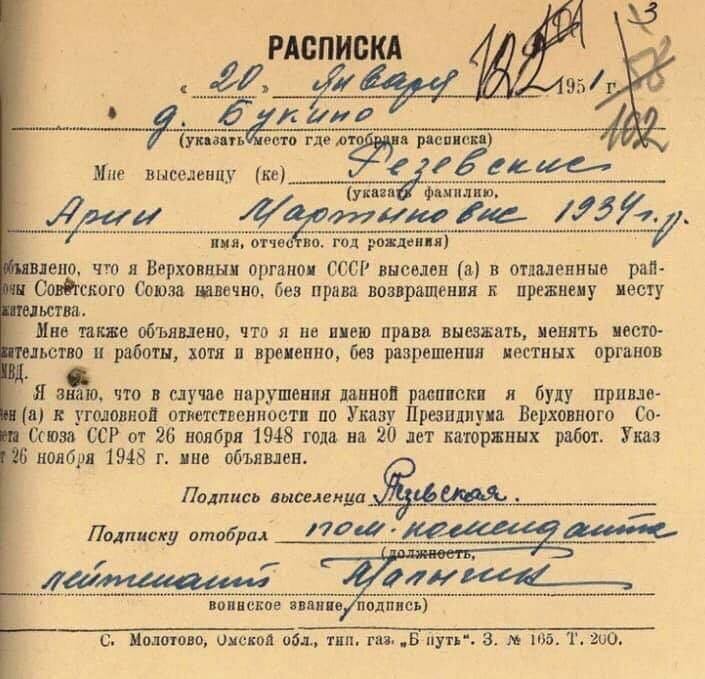 3
РАСПИСКА
122
„ 20 „ Января 1951 г.
102
д. Букино
(указать место где отобрана расписка)
Мне выселенцу (ке) Резевские
(указать фамилию,
Арии Мартыновне 1934 г.р.
имя, отчество. год рождения)
объявлено, что я Верховным органом СССР выселен (а) в отдаленные рай-
оны Советского Союза навечно, без права возвращения к прежнему месту
жительства.
Мне также объявлено, что я не имею права выезжать, менять место-
жительство и работы, хотя и временно, без разрешения местных органов
МВД.
Я знаю, что в случае нарушения данной расписки я буду привле-
чен (а) к уголовной ответственности по Указу Президиума Верховного Со-
вета Союза ССР от 26 ноября 1948 года на 20 лет каторжных работ. Указ
от 26 ноября 1948 г. мне объявлен.
Подпись выселенца Резевская.
Подписку отобрал пом. коменданта
(должность,
лейтенант
воинское звание, подпись)
С. Молотово, Омской обл., тип. газ. „Б путь". З. № 165. Т. 200.